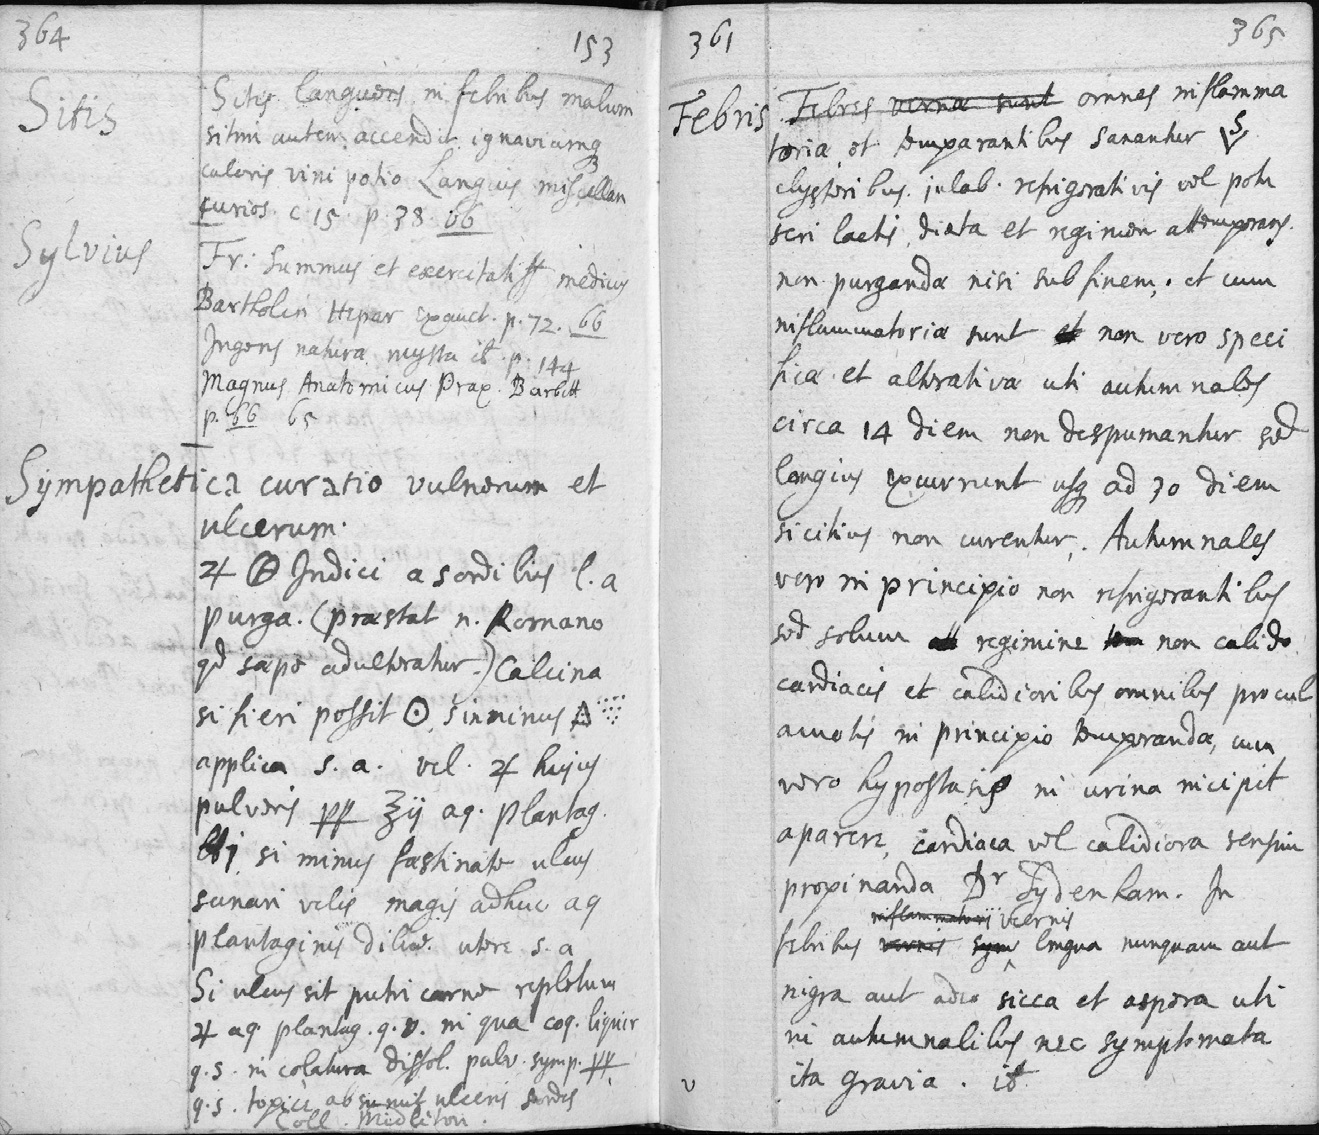 364
153
Sitis
Sitis Languoris in febribus malum
sitim autem accendit ignavicimq
caloris vini potio Langius miscellan
curios. c 15. p. 38. 66
Sylvius
Fr: Summus et exercitatiss medicus
Bartholin Hepar exauct. p. 72. 66
Ingens natura mysta ib. p. 144
Magnus Anatomicus Prax. Barbett
p. 66 65
Sympathetica curatio vulnerum et
ulcerum.
♃ Indici a sordibus l. a
purga. (præstat n. Romano
qd sæpe adulteratur.) Calcina
si fieri possit ☉ sin minus
applica s. a. vel. ♃ hujus
pulveris pp ʒij aq. plantag.
si minus festinate ulcus
sanari velis magis adhuc aq
plantaginis dilue. utere s. a
Si ulcus sit putri carne repletum
♃ aq. plantag. q. v. in qua coq. liquir
q. s. in colatura dissol. pulv. symp. pp
q. s. topici ulceris sordes
Coll. Midleton.
361
365
Febris
Febres vernæ sunt omnes inflamma
toria et temperantibus sanantur VS
clysteribus. julab. refrigerativis vel potu
seri lactis, diæta et regimen attemperans.
non purgandæ nisi sub finem, et cum
inflammatoriæ sunt et non vero speci
fica et alterativæ uti autumnales
circa 14 diem non despumantur sed
longius excurrunt usq ad 30 diem
si citius non curentur,. Autumnales
vero in principio non refrigerantibus
sed solum regimine non calido
cardiacis et calidioribus omnibus procul
amotis in principio temperanda, cum
vero hypostasis in urina incipit
aparere, cardiaca vel calidiora sensim
propinanda Dr Sydenham. In
inflammatoriis vernis
febribus vernis sym lingua nunquam aut
nigra aut adeo sicca et aspera uti
in autumnalibus nec symptomata
ita gravia. ib.
v